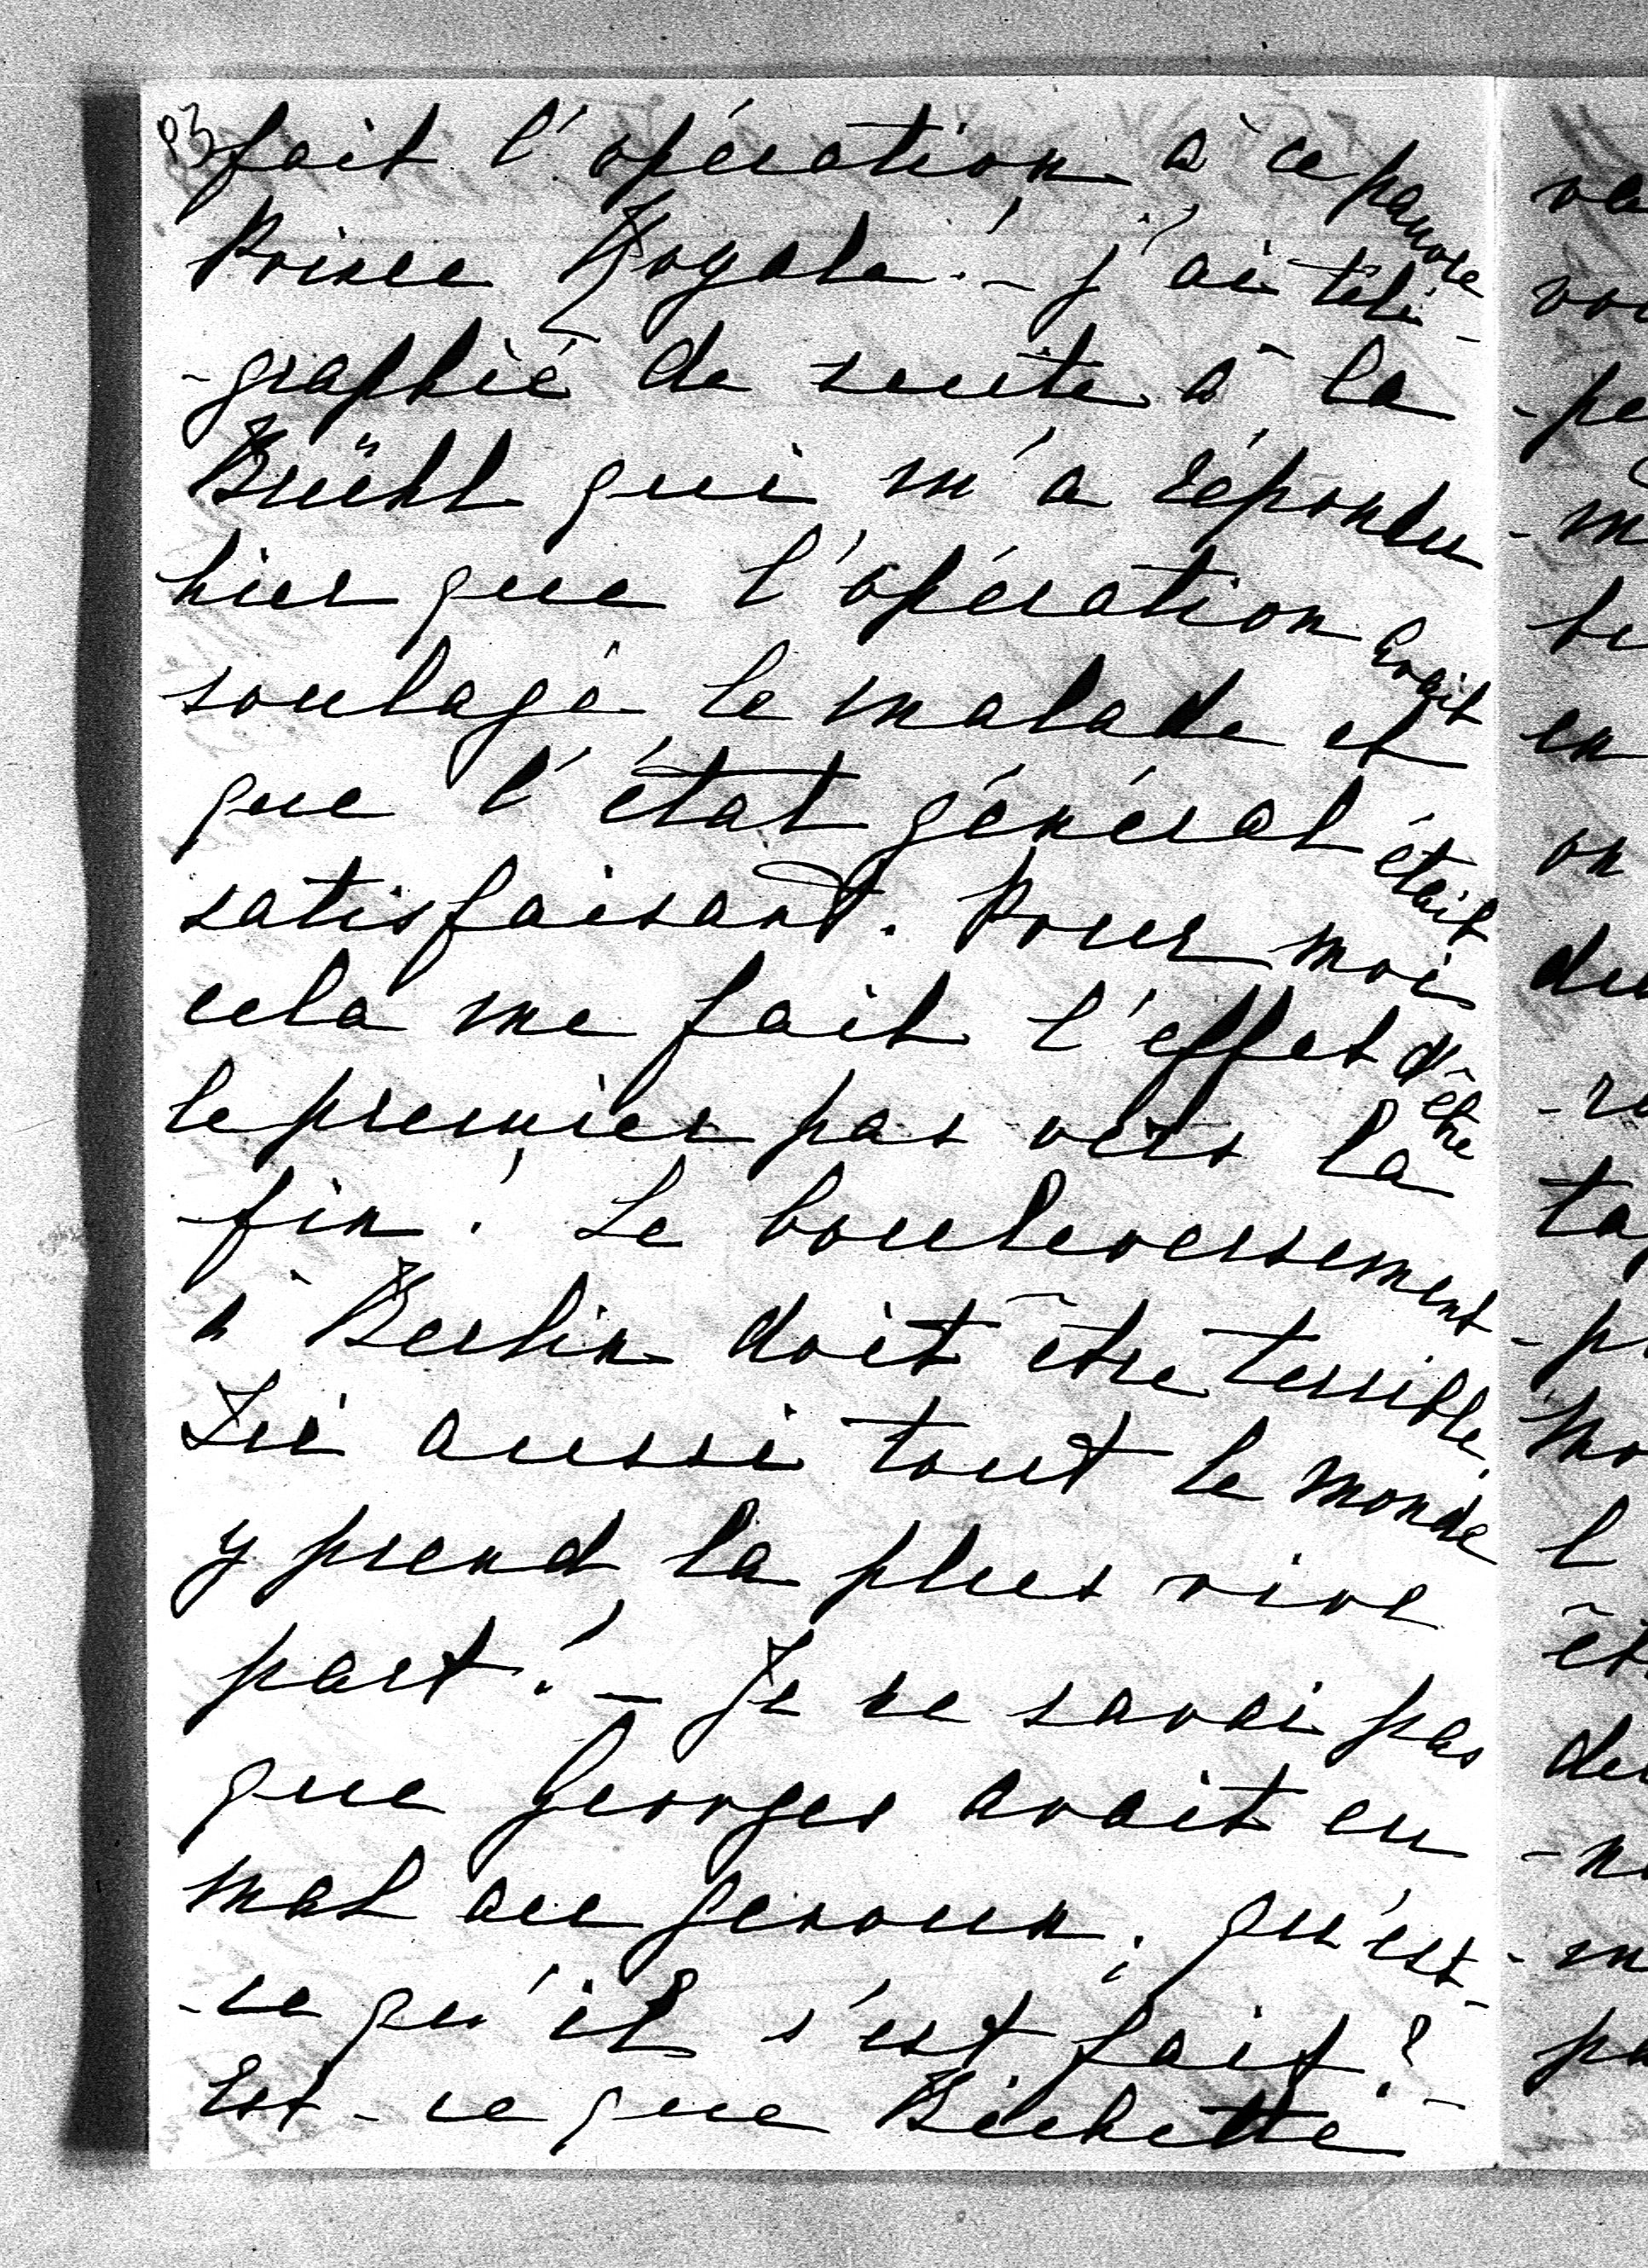 93
fait l'opération à ce pauvre
Prince Royale! – j'ai télé-
-graphié de suite à la
Brühl qui m'a répondu
hier que l'opération avait
soulagé le malade et
que l'état général était
satisfaisant. Pour moi
cela me fait l'effet d'être
le premier pas vers la
fin! Le bouleversement
à Berlin doit être terrible.
Ici aussi tout le monde
y prend la plus vive
part! – Je ne savai pas
que Georges avait eu
mal au genoux; qu'est-
-ce qu'il s'est fait? –
Est-ce que Bichette